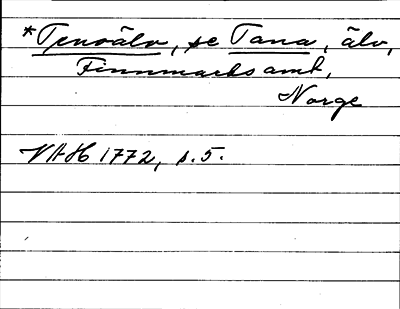 *Tenoälv, se Tana, älv,
Finnmarks amt,
Norge
VAH 1772, s. 5.